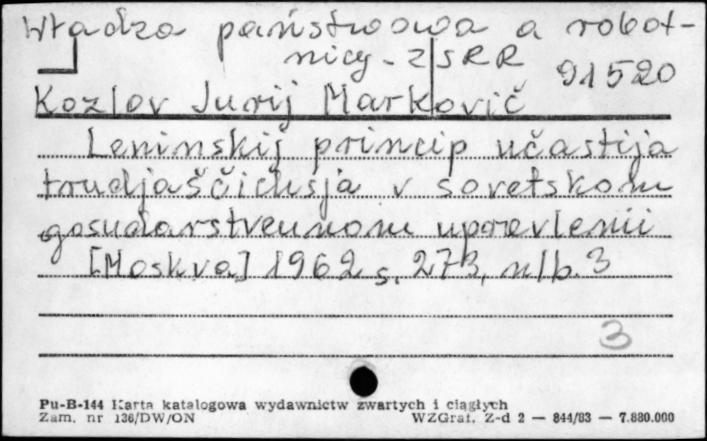 Władza państwowa a robot-
nicy - ZSRR
91520
Kozlov Jurij Markovič
Leninskij princip učastija
trudjaščichsja v sovetskom
gosudarstvennom upravlenii
[Moskva] 1962 s. 273, nlb. 3
3
Pu-B-144 Karta katalogowa wydawnictw zwartych i ciągłych
Zam. nr 136/DW/ON WZGraf. Z-d 2 — 844/83 — 7.880.000